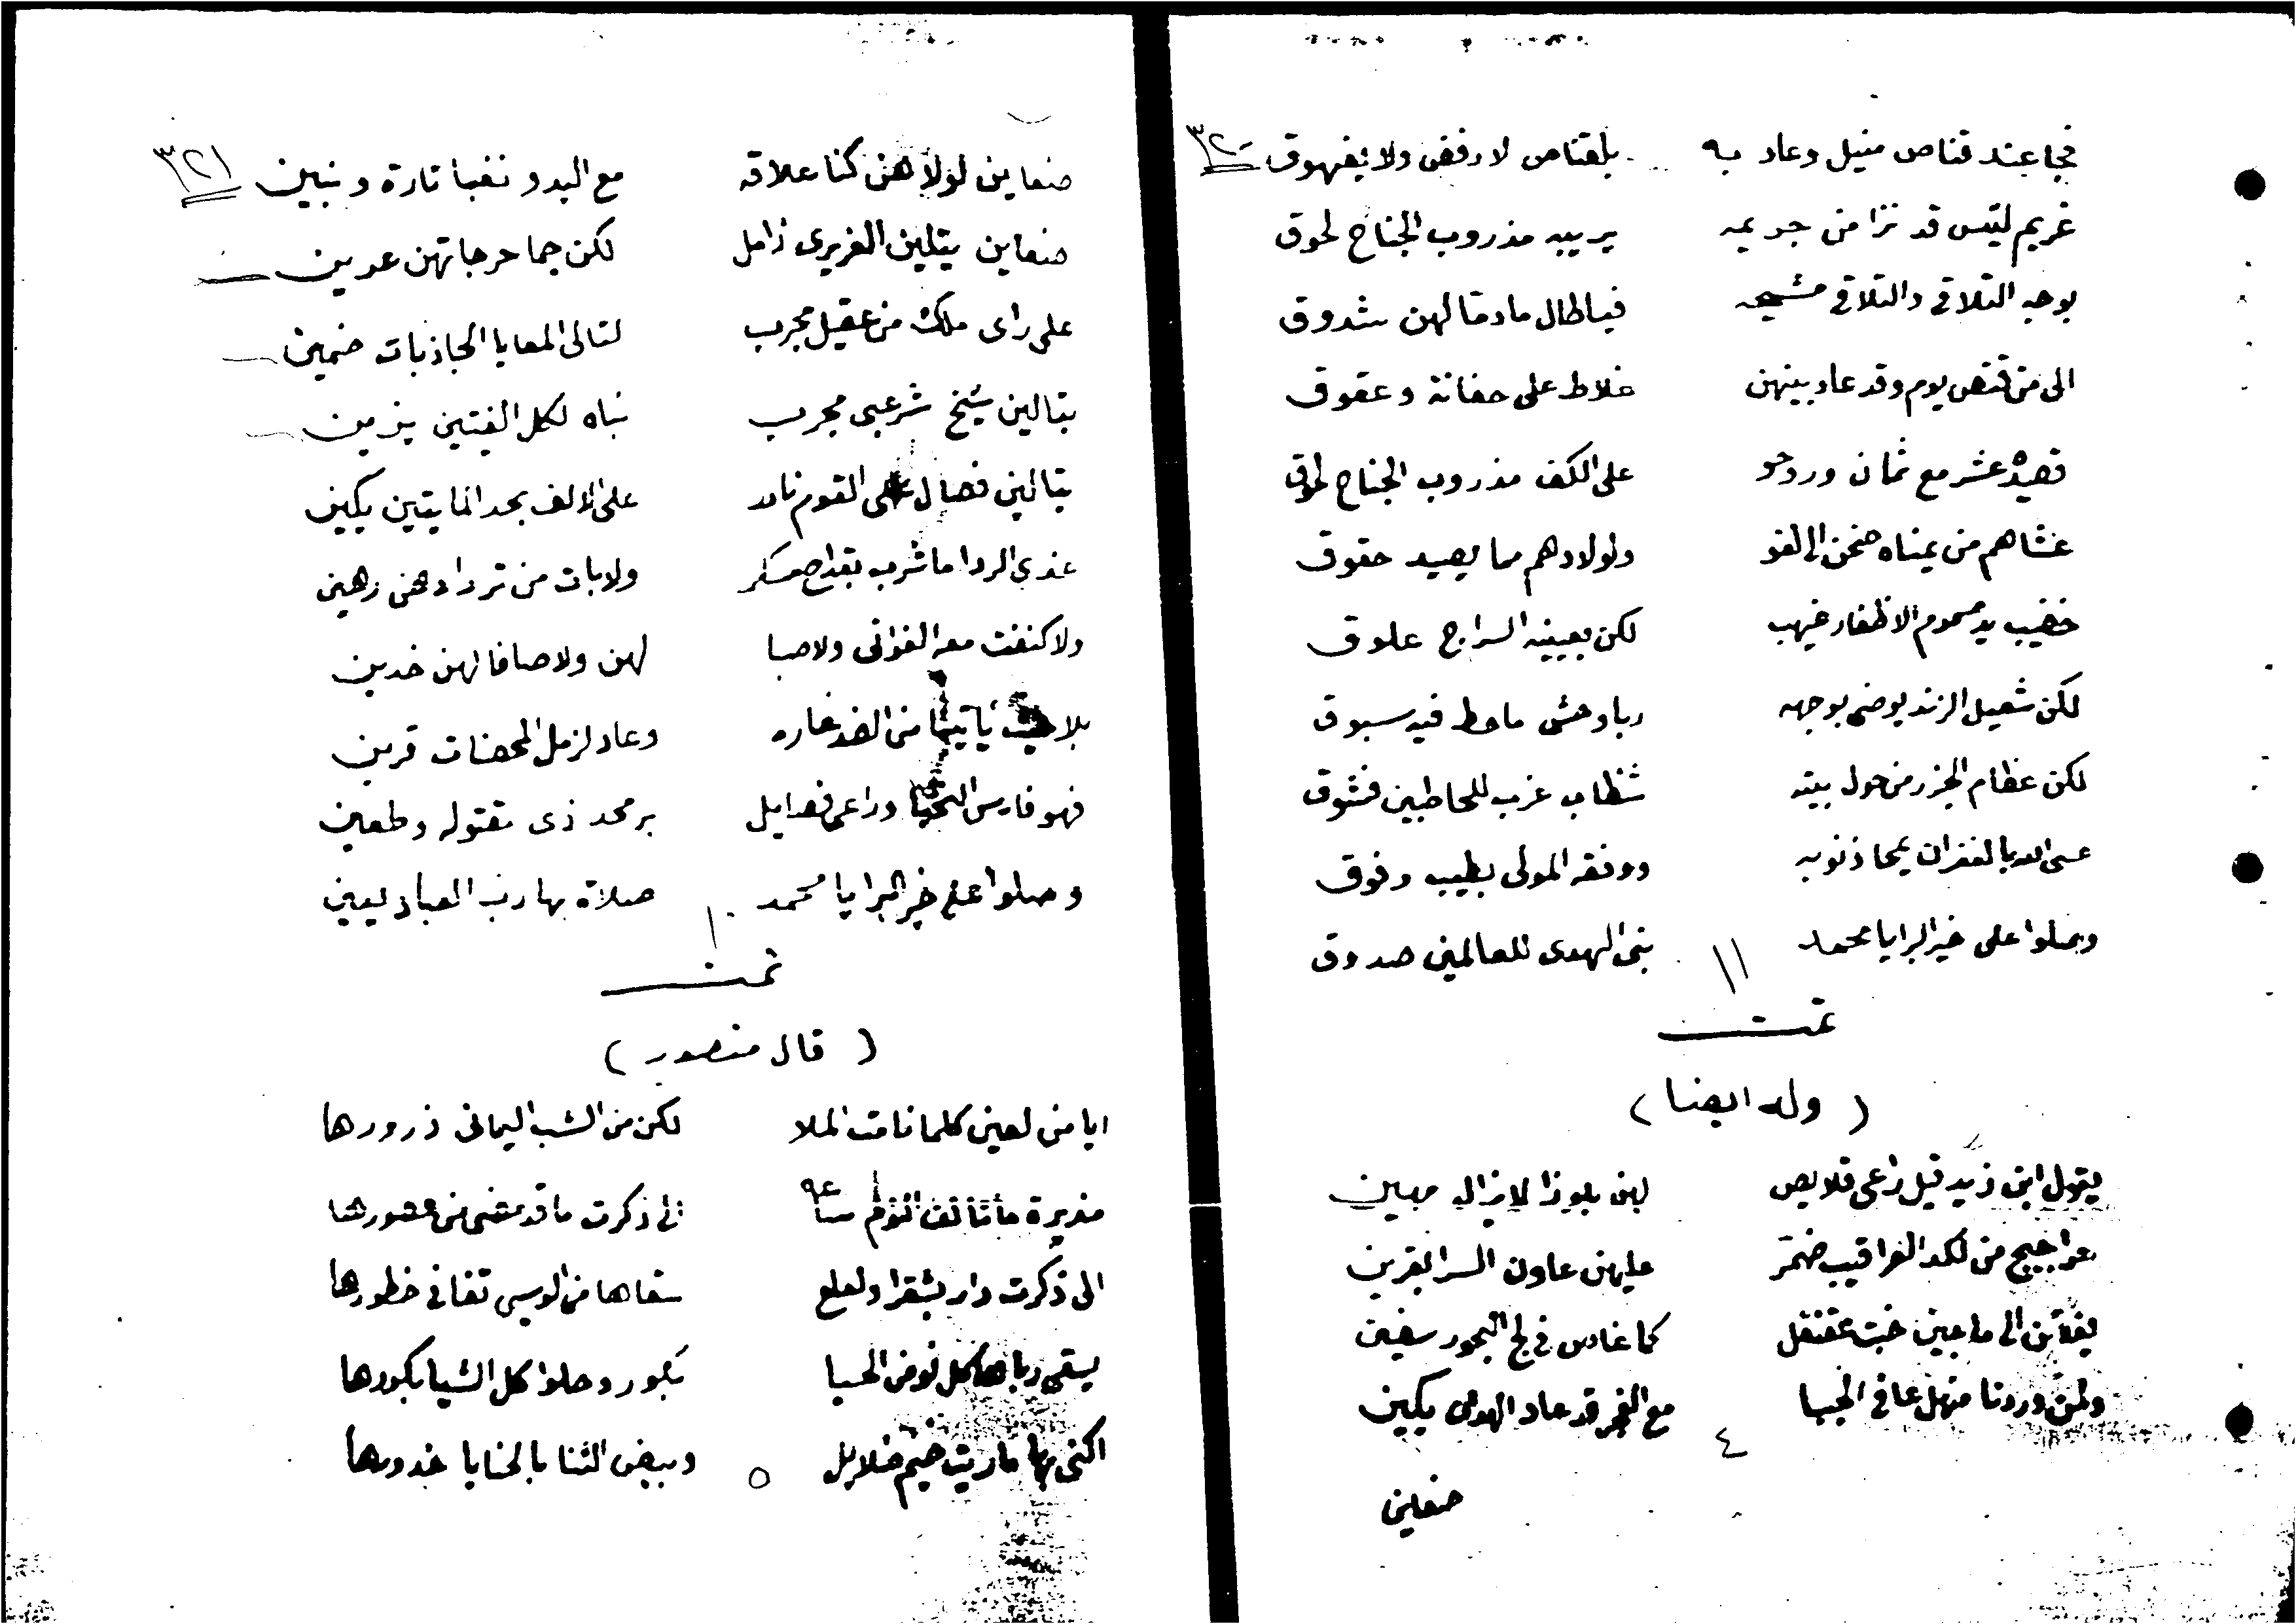 فجا عند قناص منيل وعاد به بلقناص لا رفض ولا يفهوق ٣٢٠
غريم لتيس قد نزا من جريمه يريبه مذروب الجناح لحوق
بوجه التلاقي والتلاقي مشيحه فيا طال مادما لهن شدوق
الى من قنص يوم وقد عاد بينهن خلاط على حفانة وعقوق
قصيده عشر مع ثمان وروحو على الكف مذروب الجناح لحوق
عشاهم من يمناه ضحن الى لفو ولولادهم مما يصيد حقوق
خضيب يد مسموم الاظفار غيهب لكن بعينيه السراج علوق
لكن شعيل الزند يوضي بوجهه رباوحش ماحط فيه سبوق
لكن عظام الجزر من حول بيته شظاب غرب للحاطبين فشوق
عسى الله بالغفران يمحا ذنوبه ووفقه المولى بطيب وفوق
وصلوا على خير البرايا محمد ١١ نبي الهدى للعالمين صدوق
تمت
( وله ايضا )
يقول ابن زيد قيل راعي قلايص لهن بلوذا لا يزال مهين
عواجيج من لكد العراقيب ضمر عليهن عاون السرا بقرين
الى ما بين خبت عقنقل كما غاص في لج البحور سفين
ولمن وردنا منهل عافي الجبا ٤ مع الفجر قد عاد الهدى يكين
ضعين
ضعاين لولاهن كنا علاقه مع البدو نغبا تارة ونبين ٣٢١
ضعاين يتلين الغريري زامل لكن جما حرجاتهن عرين
على راى ملك من عقيل مجرب لتالى المعايا الجاذبات ضمين
بتالين شيخ شرعبي مجرب نباه لكل الفتين يزين
بتالين فصال على القوم نادر على الالف بحد المايتين يكين
عذي الردا ما شرب بقداح مسكر ولابات من ترداد هن رهين
ولا كنفت معه الغواني ولا صبا لهن ولا صافا لهن خدين
بلا من الضد غاره وعاد لزمل المحصنات قرين
فهو فارس وراعي فصايل بر محمد ذى مقتوله وطعين
وصلوا على خير البرايا محمد ١٠ صلاة بها رب العباد يعين
تمت
( قال منصور )
ايا من لعين كلما نامت الملا لكن من الشب اليماني ذرورها
مغيرة ما تالف النوم ساعه الى ذكرت ما قد مضى من عصورها
الى ذكرت دار بشقرا ولعلع سقاها من الوسمي تغافي خطورها
يسقي رباها كل نو من الحيا بكور وحلوا كل الشيا بكورها
اكنى بها ماريت خيم ظلايل ٥ وبيض الثنا بالحنايا خدورها